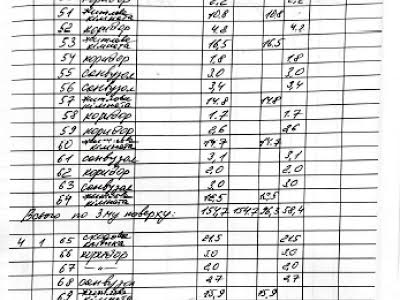 коридор 6,2 6,2
51 житлова кімната 10,8 10,8
52 коридор 4,2 4,2
53 житлова кімната 16,5 16,5
54 коридор 1,8 1,8
55 санвузол 3,0 3,0
56 санвузол 3,4 3,4
57 житлова кімната 14,8 14,8
58 коридор 1,7 1,7
59 коридор 2,6 2,6
60 житлова кімната 14,7 14,7
61 санвузол 3,1 3,1
62 коридор 2,0 2,0
63 санвузол 3,0 3,0
64 житлова кімната 12,5 12,5
Всього по 3му поверху: 154,7 154,7 96,3 58,4
4 1 65 сходова клітка 21,5 21,5
66 коридор 3,0 3,0
67 —„— 2,0 2,0
68 санвузол 2,7 2,7
69 житлова 15,9 15,9